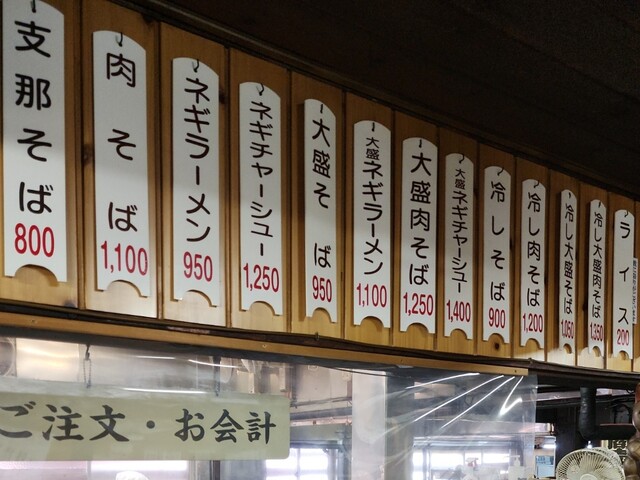 支那そば
800
肉そば
1,100
ネギラーメン
950
ネギチャーシュー
1,250
大盛そば
950
大盛ネギラーメン
1,100
大盛肉そば
1,250
大盛ネギチャーシュー
1,400
冷しそば
900
冷し肉そば
1,200
冷し大盛そば
1,050
冷し大盛肉そば
1,350
ライス
200
ご注文・お会計